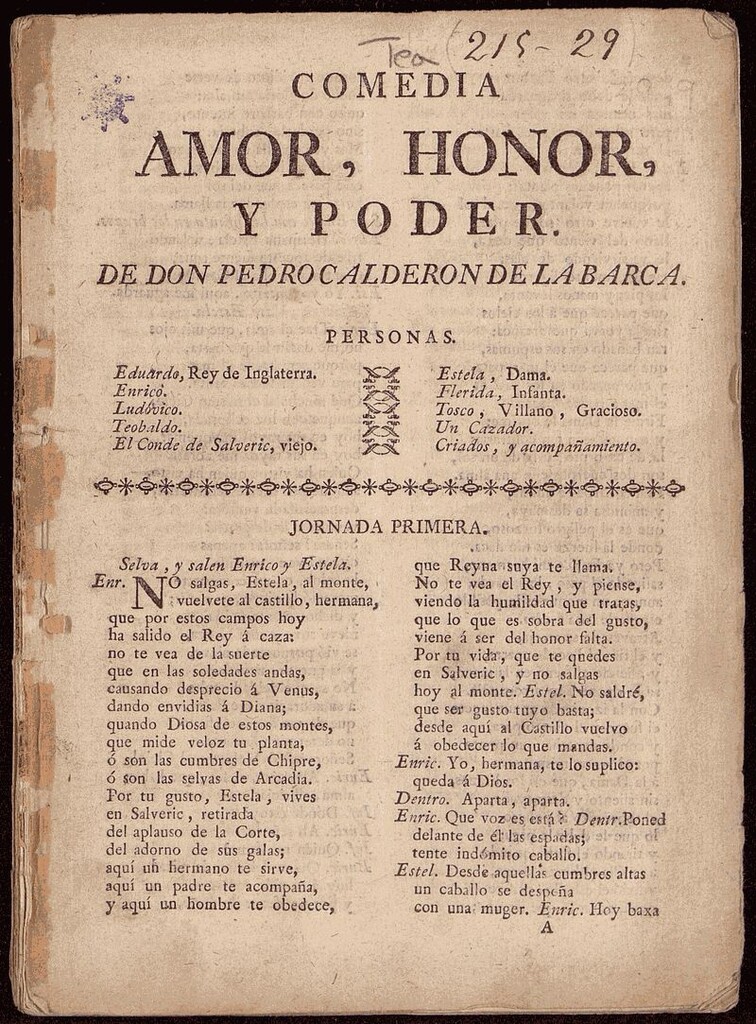 Tea (215-29)
COMEDIA
AMOR, HONOR,
Y PODER.
DE DON PEDRO CALDERON DE LA BARCA.
PERSONAS.
Eduardo, Rey de Inglaterra.
Enrico.
Ludovico.
Teobaldo.
El Conde de Salveric, viejo.
Estela, Dama.
Flerida, Infanta.
Tosco, Villano, Gracioso.
Un Cazador.
Criados, y acompañamiento.
JORNADA PRIMERA.
Selva, y salen Enrico y Estela.
Enr. NO salgas, Estela, al monte,
vuelvete al castillo, hermana,
que por estos campos hoy
ha salido el Rey á caza:
no te vea de la suerte
que en las soledades andas,
causando desprecio á Venus,
dando envidias á Diana;
quando Diosa de estos montes,
que mide veloz tu planta,
ó son las cumbres de Chipre,
ó son las selvas de Arcadia.
Por tu gusto, Estela, vives
en Salveric, retirada
del aplauso de la Corte,
del adorno de sus galas;
aquí un hermano te sirve,
aquí un padre te acompaña,
y aquí un hombre te obedece,
que Reyna suya te llama.
No te vea el Rey, y piense,
viendo la humildad que tratas,
que lo que es sobra del gusto,
viene á ser del honor falta.
Por tu vida, que te quedes
en Salveric, y no salgas
hoy al monte. Estel. No saldré,
que ser gusto tuyo basta;
desde aquí al Castillo vuelvo
á obedecer lo que mandas.
Enric. Yo, hermana, te lo suplico:
queda á Dios.
Dentro. Aparta, aparta.
Enric. Que voz es está? Dentr. Poned
delante de él las espadas;
tente indómito caballo.
Estel. Desde aquellas cumbres altas
un caballo se despeña
con una muger. Enric. Hoy baxa
A